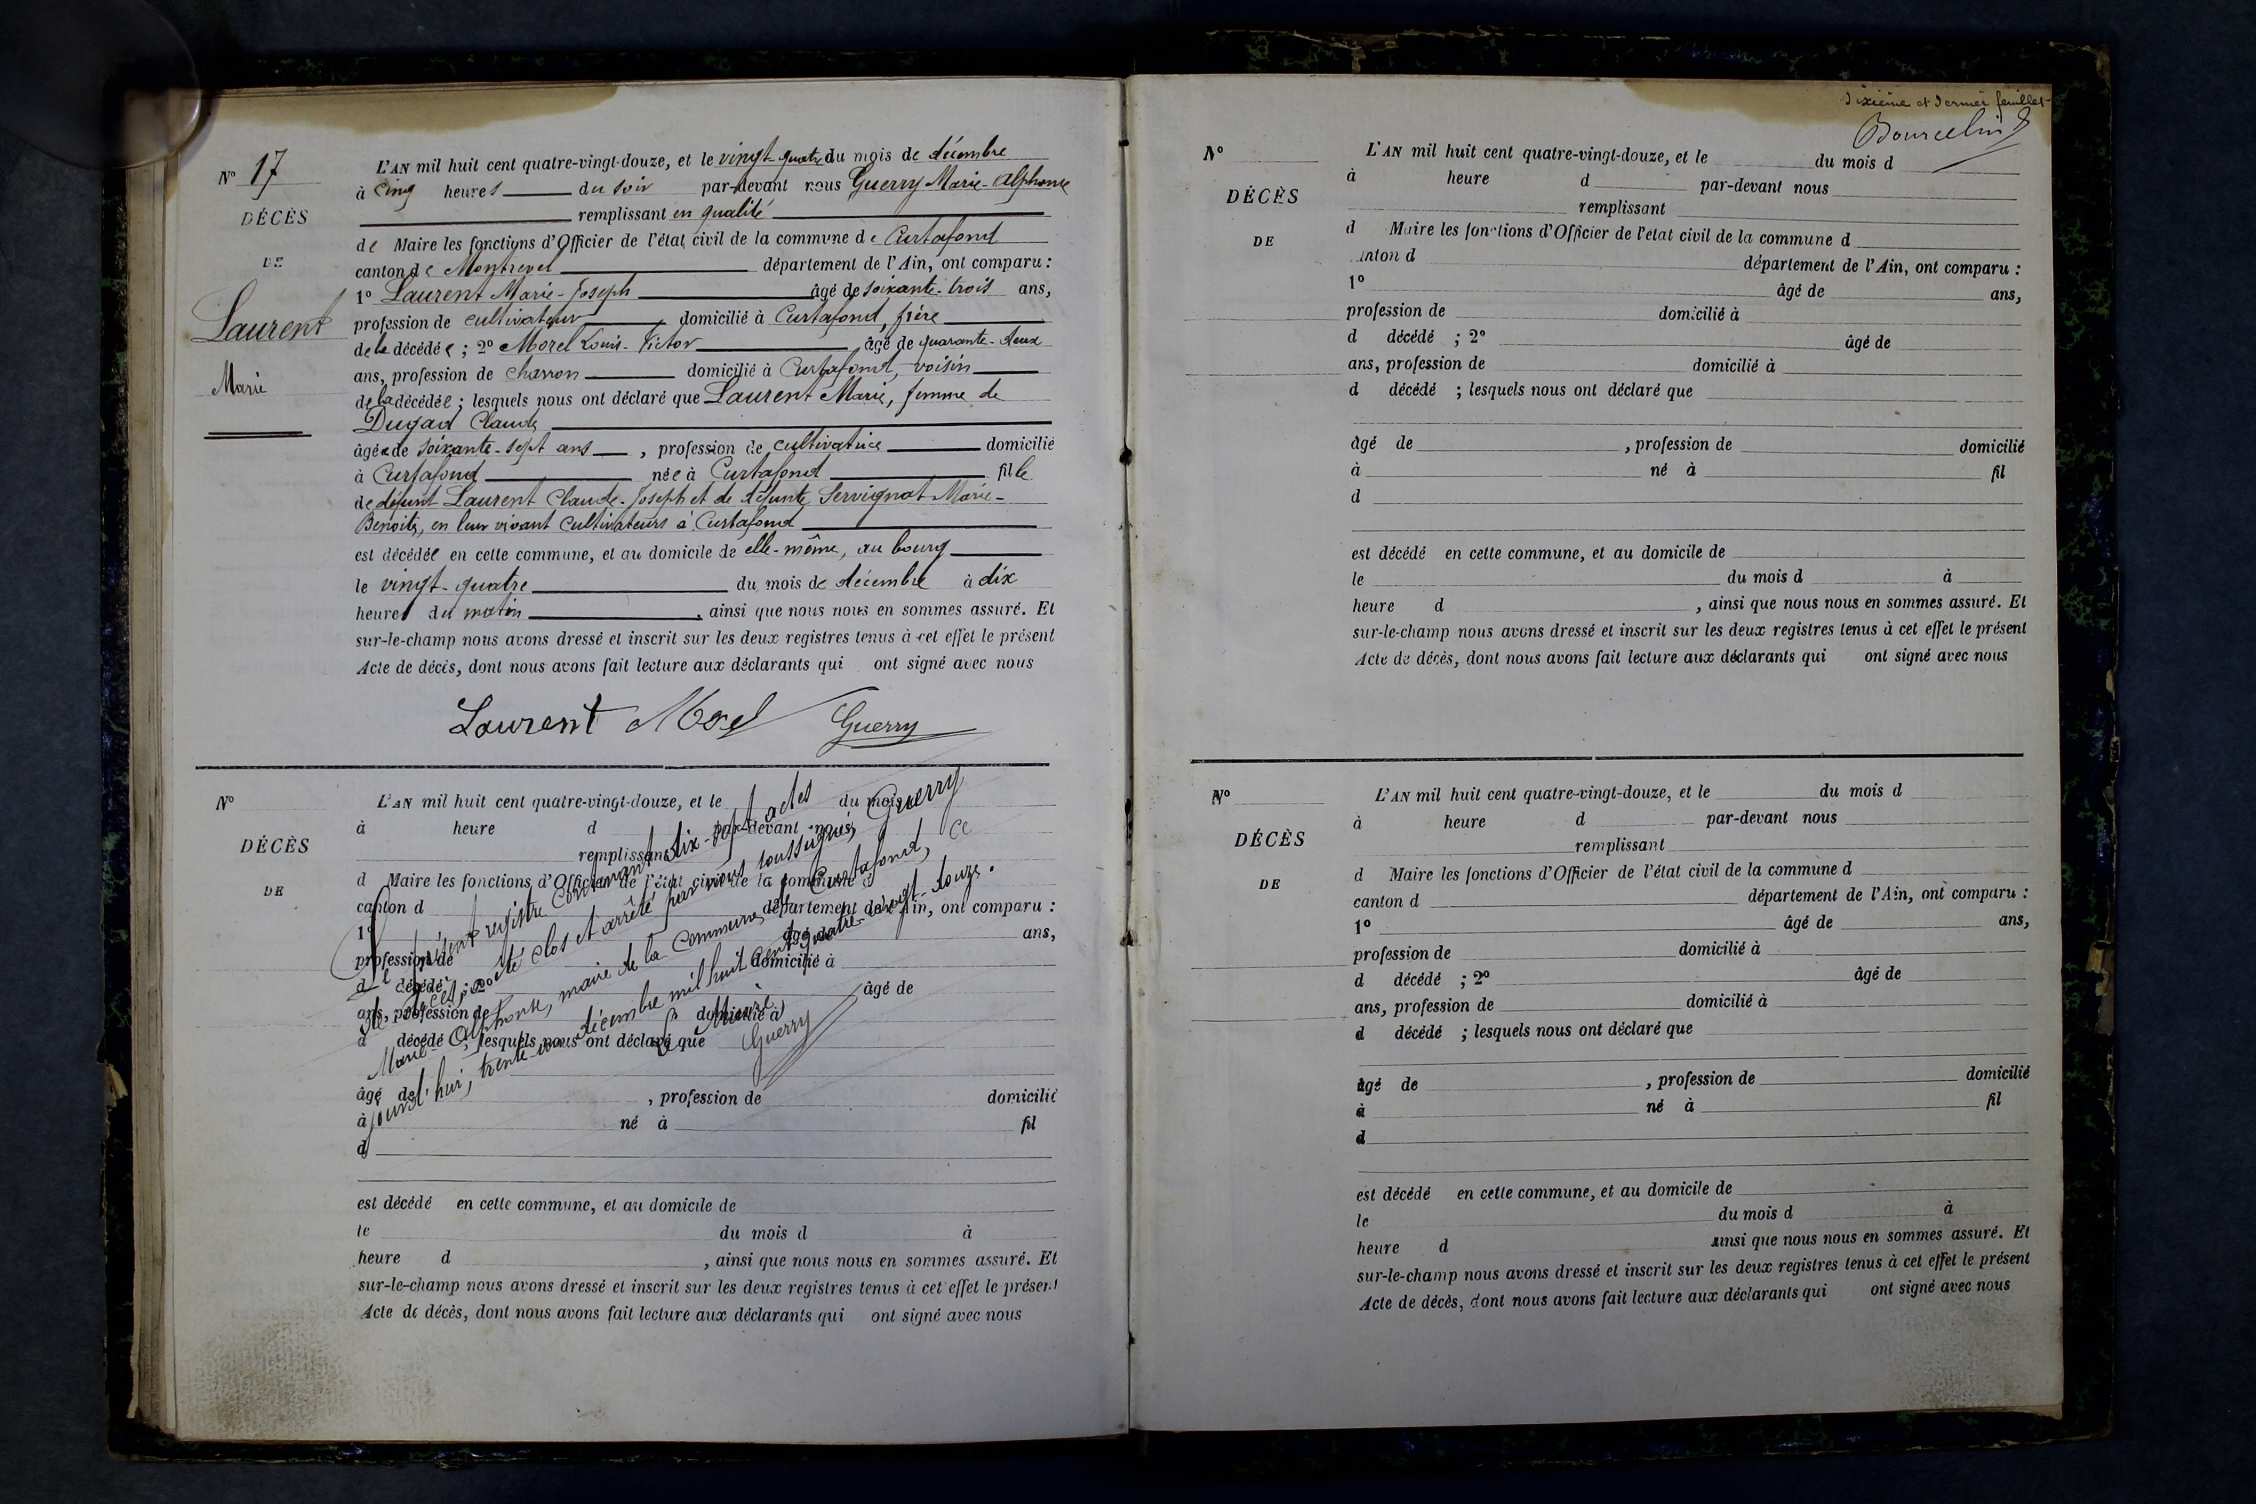 N° 17
DÉCÈS
DE
Laurent
Marie
L'AN mil huit cent quatre-vingt-douze, et le vingt-quatre du mois de décembre
à cinq heures du soir par-devant nous Guerry Marie-Alphonse
remplissant en qualité
de Maire les fonctions d'Officier de l'état civil de la commune de Curtafond
canton de Montrevel département de l'Ain, ont comparu :
1° Laurent Marie-Joseph âgé de soixante-trois ans,
profession de cultivateur domicilié à Curtafond, frère
de la décédée ; 2° Morel Louis-Victor âgé de quarante-deux
ans, profession de charron domicilié à Curtafond, voisin
de la décédée ; lesquels nous ont déclaré que Laurent Marie, femme de
Dugad Claude
âgée de soixante-sept ans, profession de cultivatrice domicilié
à Curtafond née à Curtafond fille
de défunt Laurent Claude-Joseph et de défunte Servignat Marie-
Benoite, en leur vivant cultivateurs à Curtafond
est décédée en cette commune, et au domicile de elle-même, au bourg
le vingt-quatre du mois de décembre à dix
heures du matin, ainsi que nous nous en sommes assuré. Et
sur-le-champ nous avons dressé et inscrit sur les deux registres tenus à cet effet le présent
Acte de décès, dont nous avons fait lecture aux déclarants qui ont signé avec nous
Laurent Morel Guerry
N°
DÉCÈS
DE
L'AN mil huit cent quatre-vingt-douze, et le du mois
à heure d par-devant nous
remplissant
d Maire les fonctions d'Officier de l'état civil de la commune d
canton d département de l'Ain, ont comparu :
1° âgé de ans,
profession de domicilié à
d décédé ; 2° âgé de
ans, profession de domicilié à
d décédé ; lesquels nous ont déclaré que
âgé de , profession de domicilié
à né à fil
d
est décédé en cette commune, et au domicile de
le du mois d à
heure d , ainsi que nous nous en sommes assuré. Et
sur-le-champ nous avons dressé et inscrit sur les deux registres tenus à cet effet le présent
Acte de décès, dont nous avons fait lecture aux déclarants qui ont signé avec nous
Le présent registre contenant dix-sept actes
de décès, a été clos et arrêté par nous soussigné, Guerry
Marie-Alphonse, maire de la commune de Curtafond, ce
jourd'hui, trente-un décembre mil huit cent quatre-vingt-douze.
Le Maire,
Guerry
dixième et dernier feuillet
Bourcelin
N°
DÉCÈS
DE
L'AN mil huit cent quatre-vingt-douze, et le du mois d
à heure d par-devant nous
remplissant
d Maire les fonctions d'Officier de l'état civil de la commune d
canton d département de l'Ain, ont comparu :
1° âgé de ans,
profession de domicilié à
d décédé ; 2° âgé de
ans, profession de domicilié à
d décédé ; lesquels nous ont déclaré que
âgé de , profession de domicilié
à né à fil
d
est décédé en cette commune, et au domicile de
le du mois d à
heure d , ainsi que nous nous en sommes assuré. Et
sur-le-champ nous avons dressé et inscrit sur les deux registres tenus à cet effet le présent
Acte de décès, dont nous avons fait lecture aux déclarants qui ont signé avec nous
N°
DÉCÈS
DE
L'AN mil huit cent quatre-vingt-douze, et le du mois d
à heure d par-devant nous
remplissant
d Maire les fonctions d'Officier de l'état civil de la commune d
canton d département de l'Ain, ont comparu :
1° âgé de ans,
profession de domicilié à
d décédé ; 2° âgé de
ans, profession de domicilié à
d décédé ; lesquels nous ont déclaré que
âgé de , profession de domicilié
à né à fil
d
est décédé en cette commune, et au domicile de
le du mois d à
heure d ainsi que nous nous en sommes assuré. Et
sur-le-champ nous avons dressé et inscrit sur les deux registres tenus à cet effet le présent
Acte de décès, dont nous avons fait lecture aux déclarants qui ont signé avec nous